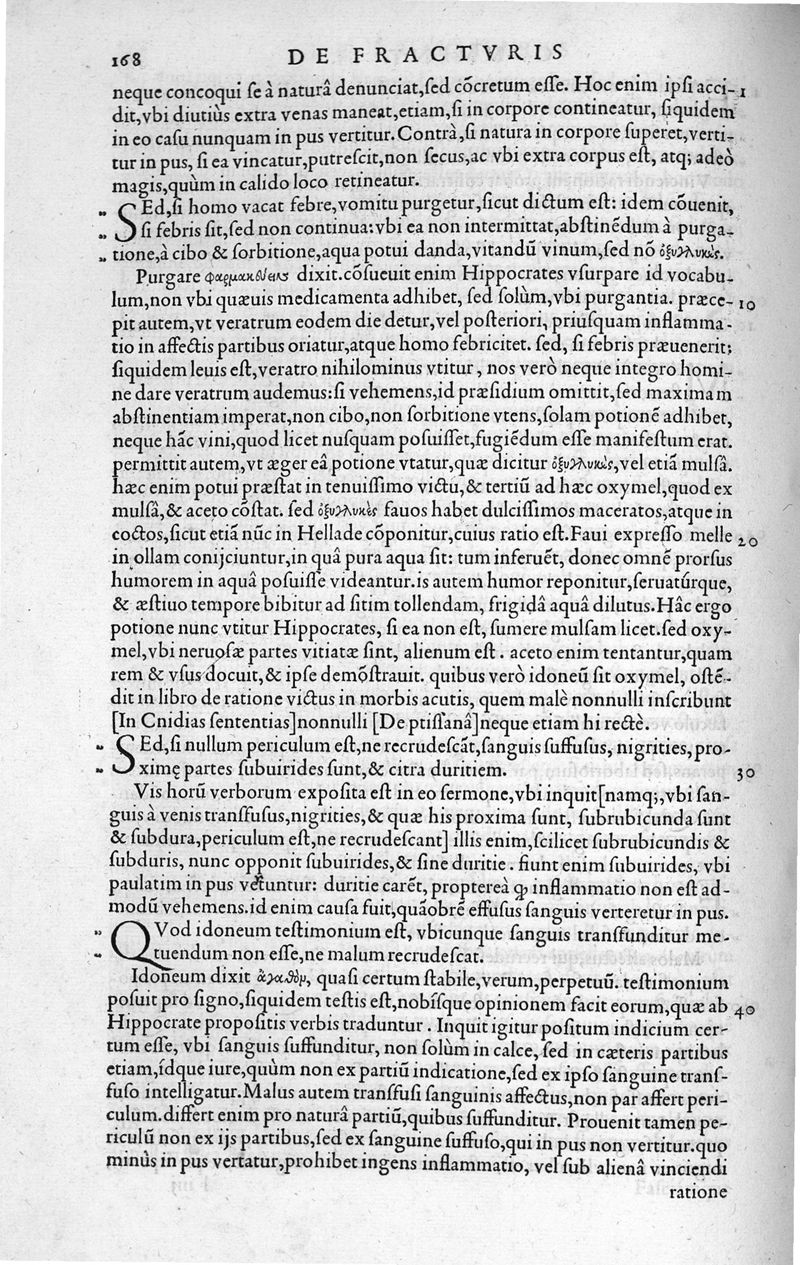 168 DE FRACTVRIS
neque concoqui se à naturâ denunciat,sed cõcretum esse. Hoc enim ipsi acci- 1
dit,vbi diutiùs extra venas maneat,etiam,si in corpore contineatur, siquidem
in eo casu nunquam in pus vertitur. Contrà,si natura in corpore superet,verti-
tur in pus, si ea vincatur,putrescit,non secus,ac vbi extra corpus est, atq; adeò
magis,quùm in calido loco retineatur.
„ SEd,si homo vacat febre,vomitu purgetur,sicut dictum est: idem cõuenit,
„ si febris sit,sed non continua:vbi ea non intermittat,abstinẽdum à purga-
„ tione,à cibo & sorbitione,aqua potui danda,vitandũ vinum,sed nõ ὀξυγλυκὺς.
Purgare φαρμακεύειν dixit.cõsueuit enim Hippocrates vsurpare id vocabu-
lum,non vbi quæuis medicamenta adhibet, sed solùm,vbi purgantia. præce- 10
pit autem,vt veratrum eodem die detur,vel posteriori, priusquam inflamma-
tio in affectis partibus oriatur,atque homo febricitet. sed, si febris præuenerit;
siquidem leuis est,veratro nihilominus vtitur, nos verò neque integro homi-
ne dare veratrum audemus:si vehemens,id præsidium omittit,sed maximam
abstinentiam imperat,non cibo,non sorbitione vtens,solam potionẽ adhibet,
neque hãc vini,quod licet nusquam posuisset,fugiẽdum esse manifestum erat.
permittit autem,vt æger eâ potione vtatur,quæ dicitur ὀξυγλυκὺς,vel etiã mulsâ.
hæc enim potui præstat in tenuissimo victu,& tertiũ ad hæc oxymel,quod ex
mulsâ,& aceto cõstat. sed ὀξυγλυκὺς fauos habet dulcissimos maceratos,atque in
coctos,sicut etiã nũc in Hellade cõponitur,cuius ratio est.Faui expresso melle 20
in ollam conijciuntur,in quâ pura aqua sit: tum inferuẽt, donec omnẽ prorsus
humorem in aquâ posuisse videantur.is autem humor reponitur,seruatúrque,
& æstiuo tempore bibitur ad sitim tollendam, frigidâ aquâ dilutus.Hâc ergo
potione nunc vtitur Hippocrates, si ea non est, sumere mulsam licet.sed oxy-
mel,vbi neruosæ partes vitiatæ sint, alienum est . aceto enim tentantur,quam
rem & vsus docuit,& ipse demõstrauit. quibus verò idoneũ sit oxymel, ostẽ-
dit in libro de ratione victus in morbis acutis, quem malè nonnulli inscribunt
[In Cnidias sententias]nonnulli [De ptissanâ]neque etiam hi rectè.
„ SEd,si nullum periculum est,ne recrudescãt,sanguis suffusus, nigrities,pro-
„ ximę partes subuirides sunt,& citra duritiem. 30
Vis horũ verborum exposita est in eo sermone,vbi inquit[namq;,vbi san-
guis à venis transfusus,nigrities,& quæ his proxima sunt, subrubicunda sunt
& subdura,periculum est,ne recrudescant] illis enim,scilicet subrubicundis &
subduris, nunc opponit subuirides,& sine duritie . fiunt enim subuirides, vbi
paulatim in pus vertuntur: duritie carẽt, propterea ꝙ inflammatio non est ad-
modũ vehemens.id enim causa fuit,quãobrẽ effusus sanguis verteretur in pus.
„ QVod idoneum testimonium est, vbicunque sanguis transfunditur me-
„ tuendum non esse,ne malum recrudescat.
Idoneum dixit ἀγαθὸν, quasi certum stabile,verum,perpetuũ. testimonium
posuit pro signo,siquidem testis est,nobísque opinionem facit eorum,quæ ab 40
Hippocrate propositis verbis traduntur . Inquit igitur positum indicium cer-
tum esse, vbi sanguis suffunditur, non solùm in calce, sed in cæteris partibus
etiam,ídque iure,quùm non ex partiũ indicatione,sed ex ipso sanguine trans-
fuso intelligatur.Malus autem transfusi sanguinis affectus,non par affert peri-
culum.differt enim pro naturâ partiũ,quibus suffunditur. Prouenit tamen pe-
riculũ non ex ijs partibus,sed ex sanguine suffuso,qui in pus non vertitur.quo
minùs in pus vertatur,prohibet ingens inflammatio, vel sub alienâ vinciendi
ratione